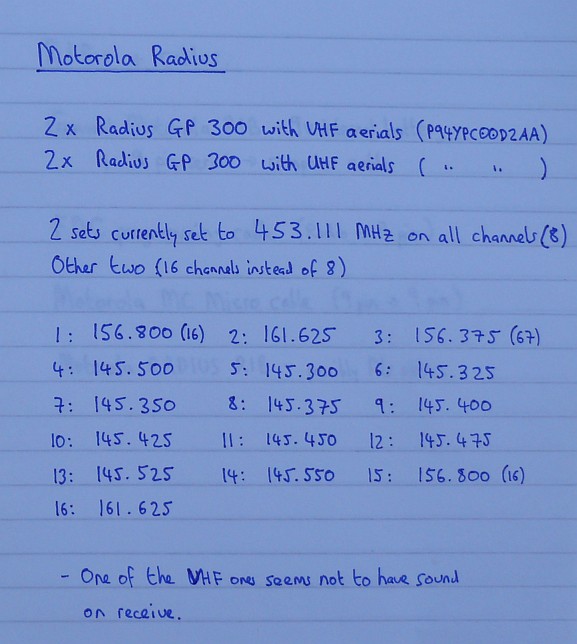 Motorola Radius
2 x Radius GP 300 with VHF aerials (P94YPC00D2AA)
2 x Radius GP 300 with UHF aerials ( " " )
2 sets currently set to 453.111 MHz on all channels (8)
Other two (16 channels instead of 8)
1: 156.800 (16) 2: 161.625 3: 156.375 (67)
4: 145.500 5: 145.300 6: 145.325
7: 145.350 8: 145.375 9: 145.400
10: 145.425 11: 145.450 12: 145.475
13: 145.525 14: 145.550 15: 156.800 (16)
16: 161.625
- One of the VHF ones seems not to have sound
on receive.